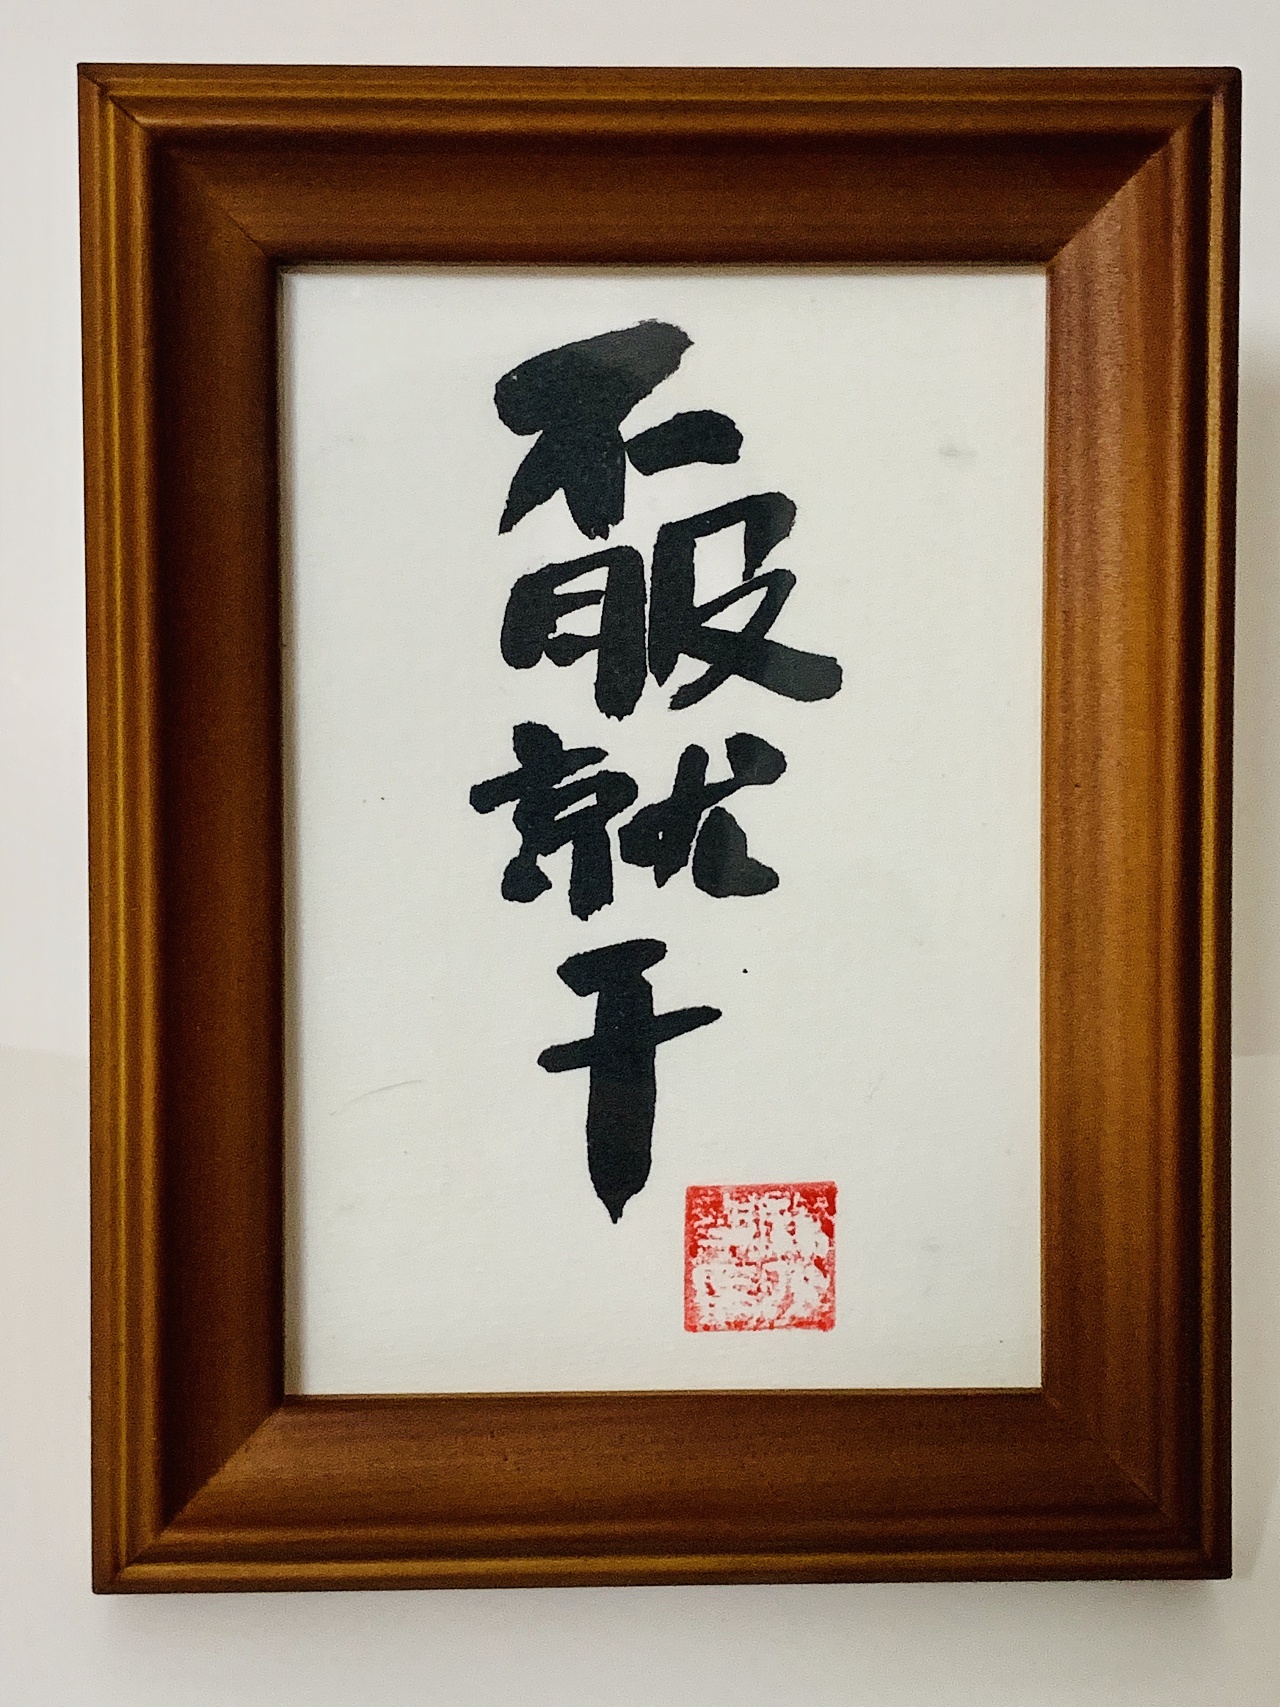 不服就干